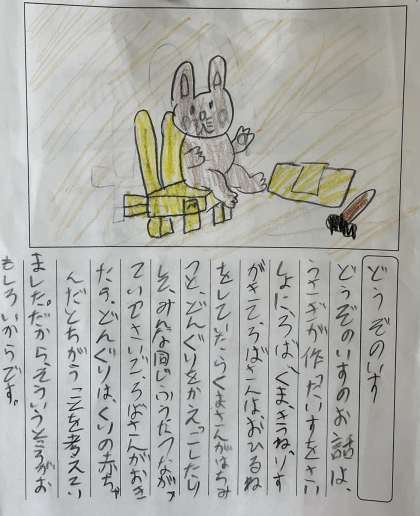 どうぞのいす
どうぞのいすのお話は、
うさぎが作ったいすをさい
しょに、ろば、くま、きつね、りす
がきて、ろばさんはおひるね
をしていたらくまさんがはちみ
つと、どんぐりをかえっこしたり
して、みんな同じふうにつながっ
ていってさいご、ろばさんがおき
たら。どんぐりは、くりの赤ちゃ
んだとちがうことを考えてい
ました。だから、そういうところがお
もしろいからです。